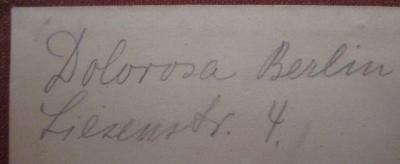 Dolorosa Berlin
Liesenstr. 4.